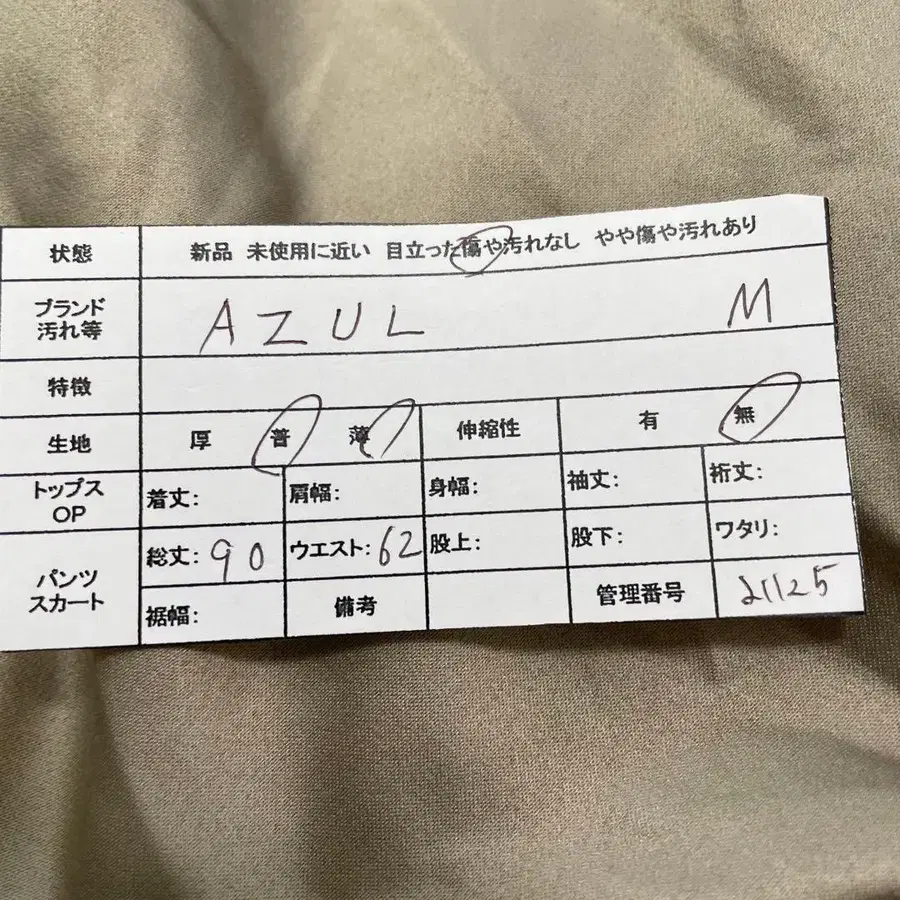 状態 新品 未使用に近い 目立った傷や汚れなし やや傷や汚れあり
ブランド 汚れ等 AZUL M
特徴
生地 厚 普 薄 伸縮性 有 無
トップス OP 着丈: 肩幅: 身幅: 袖丈: 裄丈:
パンツ スカート 総丈: 90 ウエスト: 62 股上: 股下: ワタリ:
裾幅: 備考 管理番号 21125